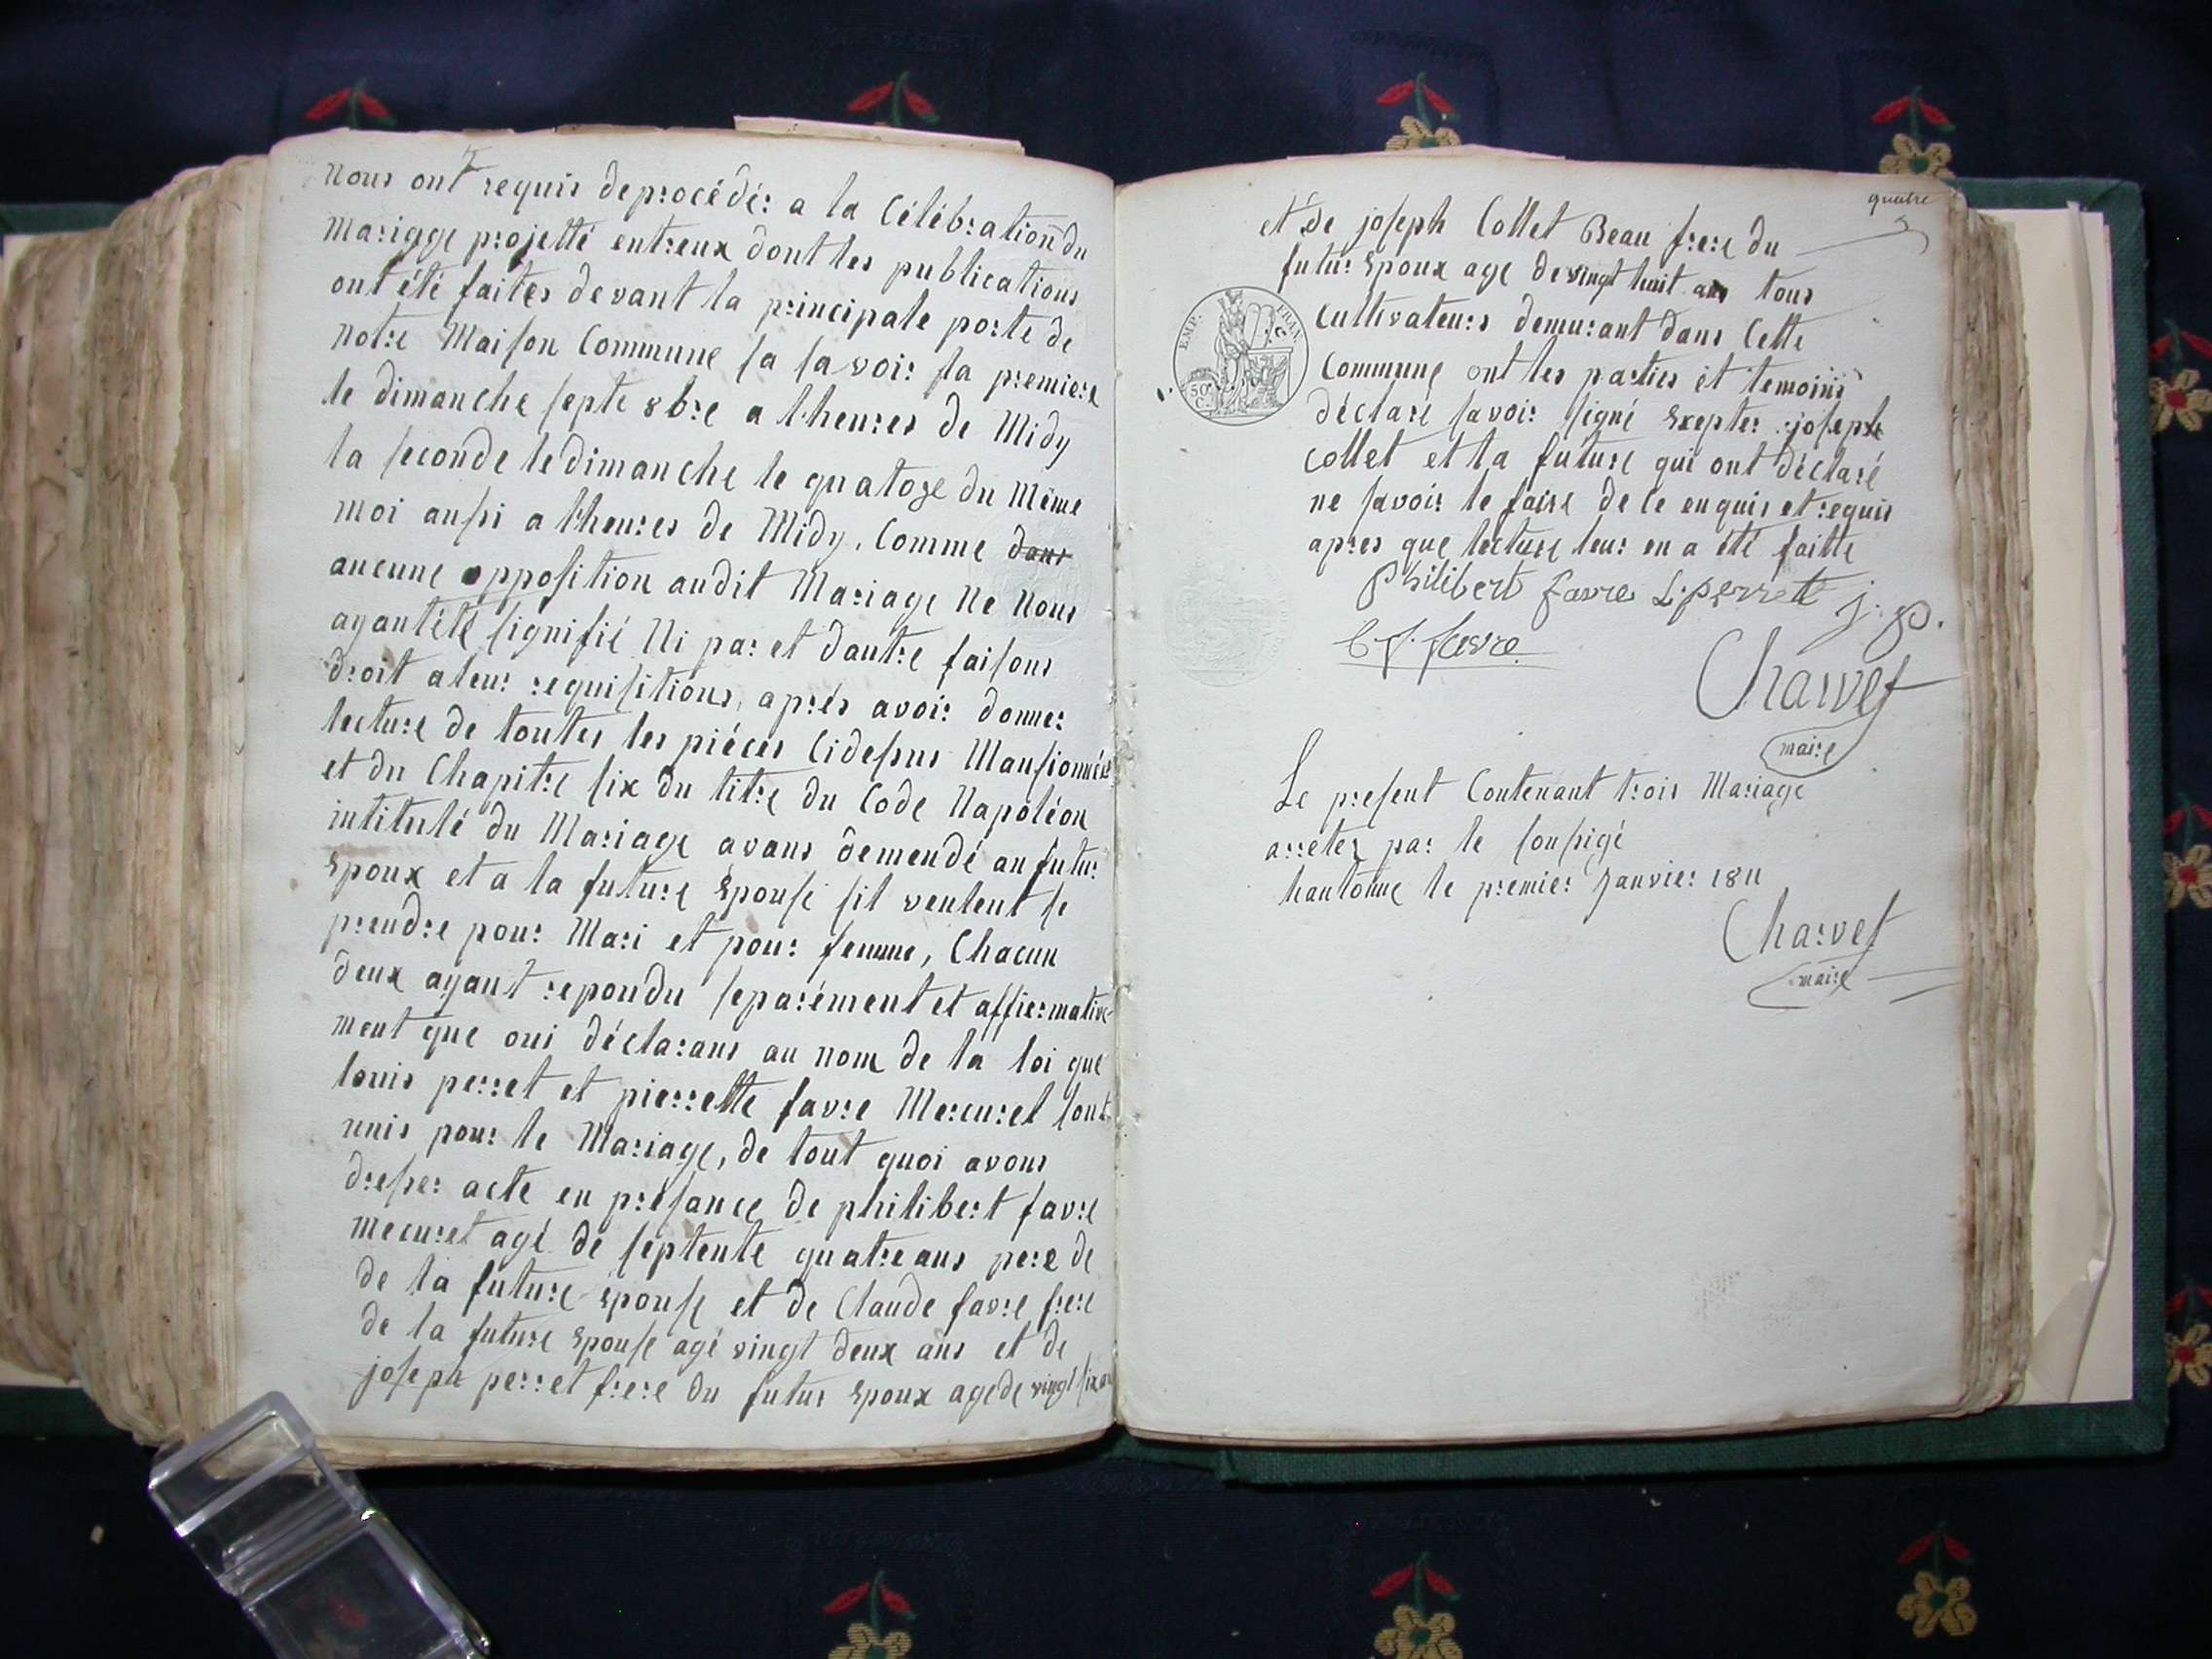 Nous ont requis de procédér a la Célébration du
Mariage projetté entreux dont les publications
ont été faites devant la principale porte de
notre Maison Commune sa savoir sa premiere
le dimanche septe 8bre a lheures de Midy
la seconde le dimanche le quatoze du Même
moi aussi a lheures de Midy, Comme dans
aucune opposition audit Mariage Ne Nous
ayant été signifié Ni par et dautre faisons
droit a leur requisitions, aprés avoir donner
lecture de toutes les piéces Cidessus Mansionnées
et du Chapitre six du titre du Code Napoléon
intitulé du Mariage avans demendé au futur
Epoux et a la future Epouse sil veulent se
prendre pour Mari et pour femme, Chacun
deux ayant repondu separément et affiermative-
ment que oui déclarans au nom de la loi que
louis perret et pierrette favre Mercuret sont
unis pour le Mariage, de tout quoi avons
dresser acte en présance de philibert favre
mecuret agé de septente quatre ans pere de
de la future Epouse et de Claude favre frere
de la future Epouse agé vingt deux ans et de
joseph perret frere du futur Epoux age de vingt six an
quatre
et de joseph Collet Beau frere du
futur Epoux age de vingt huit ans tous
EMP. FRAN.
50 C.
Cultivateurs demurant dans Cette
Commune ont les parties et temoins
déclaré savoir signé Exepter joseph
collet et la future qui ont déclaré
ne savoir le faire de ce enquis et requis
apres que lecture leur en a été faitte
Philibert favre L: perrett j. p.
C. f. favre
Charvet
maire
Le present Contenant trois Mariage
arretez par le sousigé
hautonne le premier Janvier 1811
Charvet
maire